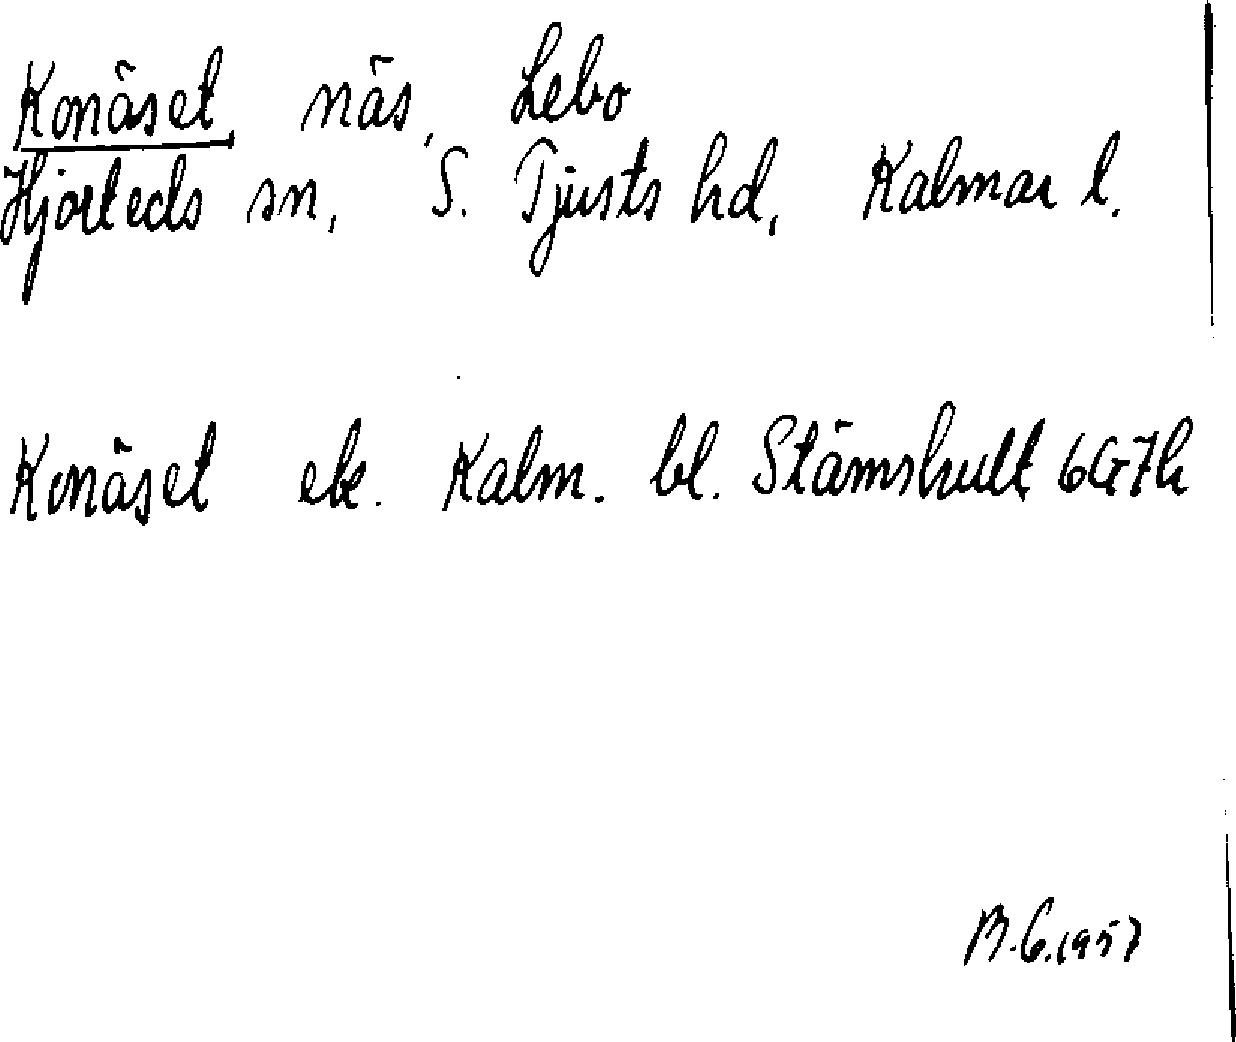 Konäset, näs, Lebo
Hjorteds sn, S. Tjusts hd, Kalmar l.
Konäset ek. Kalm. bl. Stämshult 6G7h
B.G.1957